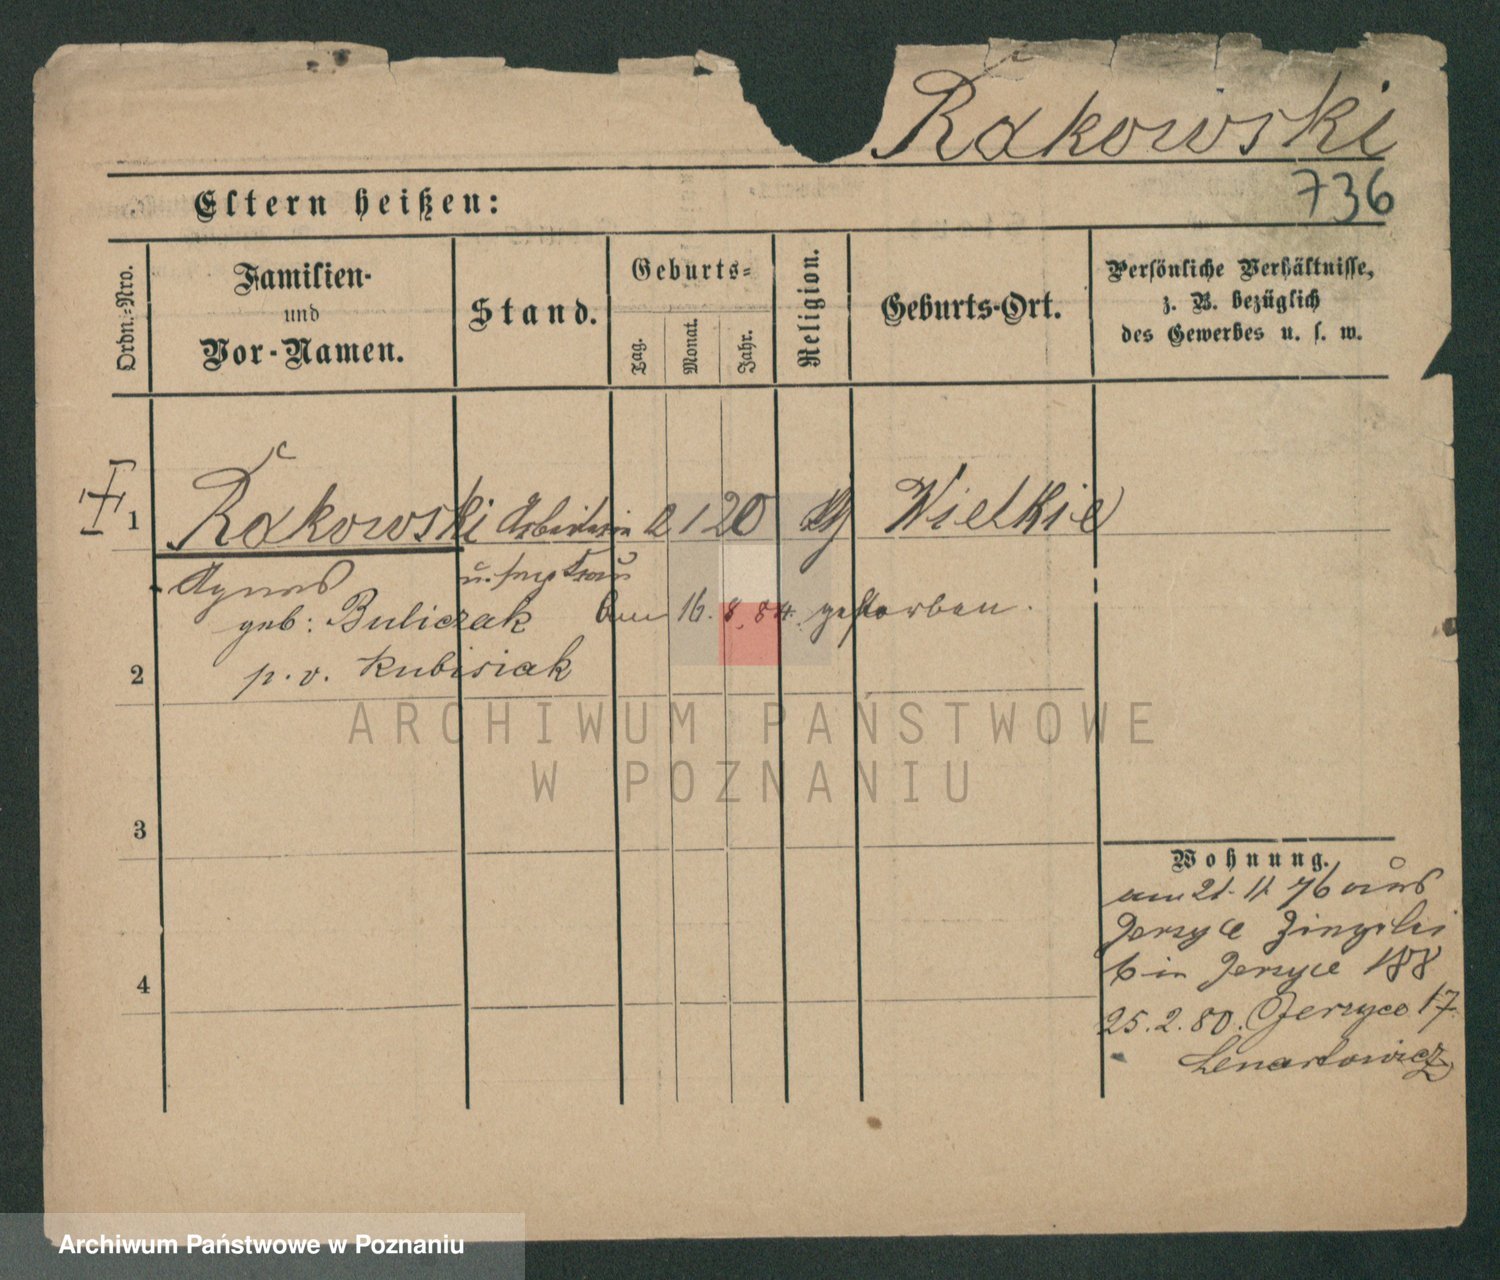 Rakowski
736
Eltern heißen:
Ordn.-Nro.
Familien-
und
Vor-Namen.
Stand.
Geburts-
Tag.
Monat.
Jahr.
Religion.
Geburts-Ort.
Persönliche Verhältnisse,
z. B. bezüglich
des Gewerbes u. s. w.
1 Rakowski Arbeiterin 2 1 20 Wielkie
Agnes
geb: Buliczak am 16. 8. 84. gestorben.
2 p. v. Kubisiak
3
4
Wohnung.
am 21. 11. 76 aus
Jerzyce
6 in Jerzyce 188
25. 2. 80. Jerzyce 17
Lenartowicz
ARCHIWUM PAŃSTWOWE
W POZNANIU
Archiwum Państwowe w Poznaniu